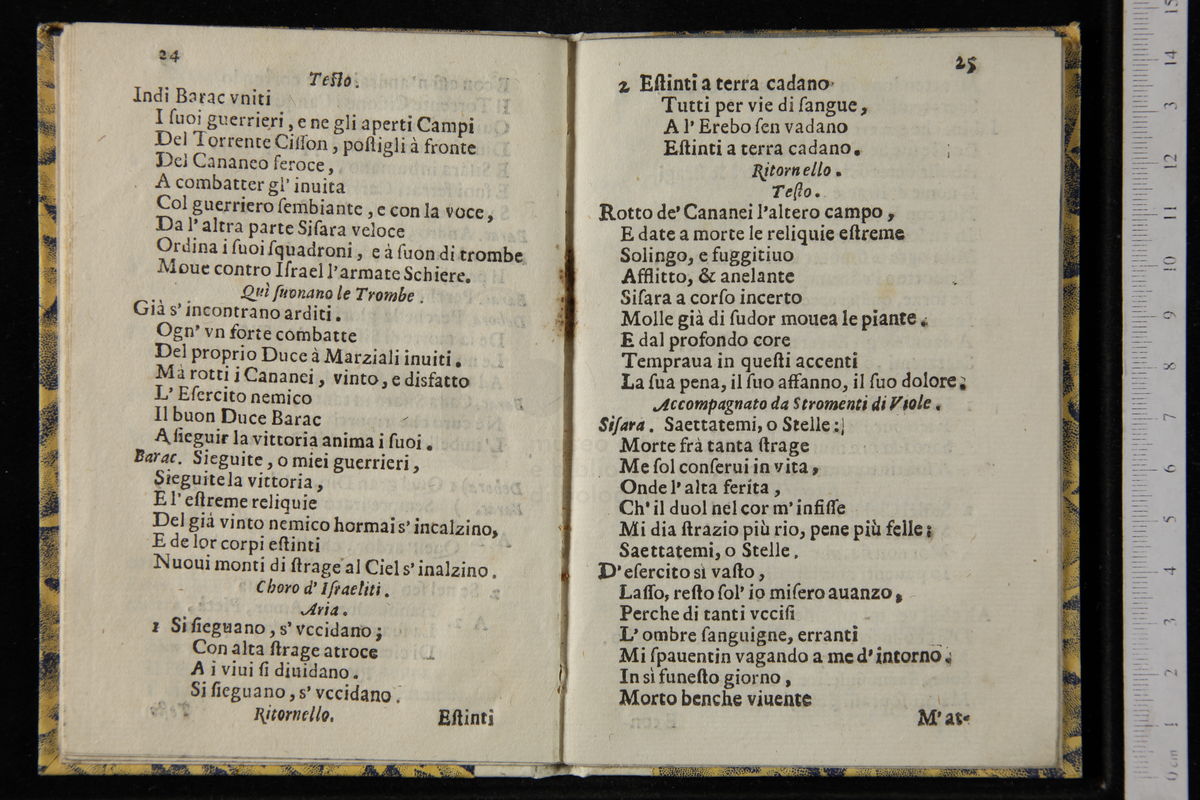 24
Teſto.
Indi Barac vniti
I ſuoi guerrieri, e ne gli aperti Campi
Del Torrente Ciſſon, poſtigli à fronte
Del Cananeo feroce,
A combatter gl' inuita
Col guerriero ſembiante, e con la voce,
Da l' altra parte Siſara veloce
Ordina i ſuoi ſquadroni, e à ſuon di trombe
Moue contro Iſrael l'armate Schiere.
Quì ſuonano le Trombe.
Già s' incontrano arditi.
Ogn' vn forte combatte
Del proprio Duce à Marziali inuiti.
Mà rotti i Cananei, vinto, e disfatto
L' Eſercito nemico
Il buon Duce Barac
A ſieguir la vittoria anima i ſuoi.
Barac. Sieguite, o miei guerrieri,
Sieguite la vittoria,
E l' eſtreme reliquie
Del già vinto nemico hormai s' incalzino,
E de lor corpi eſtinti
Nuoui monti di ſtrage al Ciel s' inalzino.
Choro d' Iſraeliti.
Aria.
1 Si ſieguano, s' vccidano;
Con alta ſtrage atroce
A i viui ſi diuidano.
Si ſieguano, s' vccidano.
Ritornello.
Eſtinti
25
2 Eſtinti a terra cadano
Tutti per vie di ſangue,
A l' Erebo ſen vadano
Eſtinti a terra cadano.
Ritornello.
Teſto.
Rotto de' Cananei l'altero campo,
E date a morte le reliquie eſtreme
Solingo, e fuggitiuo
Afflitto, & anelante
Siſara a corſo incerto
Molle già di ſudor mouea le piante.
E dal profondo core
Tempraua in queſti accenti
La ſua pena, il ſuo affanno, il ſuo dolore.
Accompagnato da Stromenti di Viole.
Siſara. Saettatemi, o Stelle:
Morte frà tanta ſtrage
Me ſol conſerui in vita,
Onde l' alta ferita,
Ch' il duol nel cor m' infiſſe
Mi dia ſtrazio più rio, pene più felle;
Saettatemi, o Stelle.
D' eſercito sì vaſto,
Laſſo, reſto ſol' io miſero auanzo,
Perche di tanti vcciſi
L' ombre ſanguigne, erranti
Mi ſpauentin vagando a me d' intorno.
In sì funeſto giorno,
Morto benche viuente
M' at-